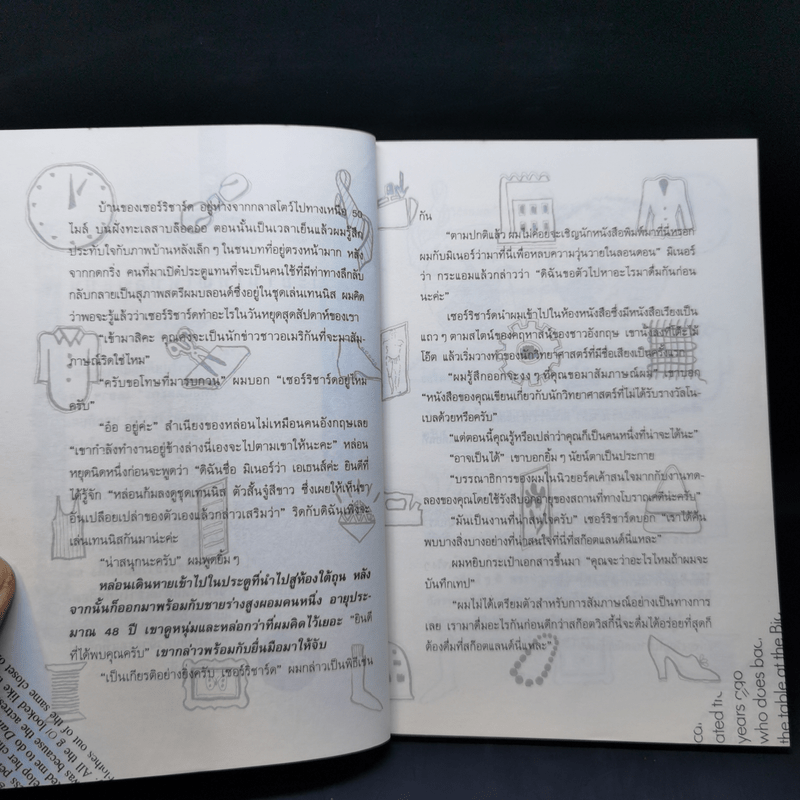 บ้านของเซอร์ริชาร์ด อยู่ห่างจากกลาสโตว์ไปทางเหนือ 50
ไมล์ บนฝั่งทะเลสาบล็อคอ้อ ตอนนั้นเป็นเวลาเย็นแล้วผมรู้สึก
ประทับใจกับภาพบ้านหลังเล็กๆ ในชนบทที่อยู่ตรงหน้ามาก หลัง
จากกดกริ่ง คนที่มาเปิดประตูแทนที่จะเป็นคนใช้ที่มีท่าทางลึกลับ
กลับกลายเป็นสุภาพสตรีผมบลอนด์ซึ่งอยู่ในชุดเล่นเทนนิส ผมคิด
ว่าพอจะรู้แล้วว่าเซอร์ริชาร์ดทำอะไรในวันหยุดสุดสัปดาห์ของเรา
"เข้ามาสิคะ คุณคงจะเป็นนักข่าวชาวอเมริกันที่จะมาสัม-
ภาษณ์ริดใช่ไหม"
"ครับขอโทษที่มารบกวน" ผมบอก "เซอร์ริชาร์ดอยู่ไหม
ครับ"
"อ๋อ อยู่ค่ะ" สำเนียงของหล่อนไม่เหมือนคนอังกฤษเลย
"เขากำลังทำงานอยู่ข้างล่างนี่เองจะไปตามเขาให้นะคะ" หล่อน
หยุดนิดหนึ่งก่อนจะพูดว่า "ดิฉันชื่อ มิเนอร์ว่า เอเธนส์ค่ะ ยินดีที่
ได้รู้จัก "หล่อนก้มลงดูชุดเทนนิส ตัวสั้นจู๋สีขาว ซึ่งเผยให้เห็นขา
อันเปลือยเปล่าของตัวเองแล้วกล่าวเสริมว่า" ริดกับดิฉันเพิ่งจะ
เล่นเทนนิสกันมาน่ะค่ะ
"น่าสนุกนะครับ" ผมพูดยิ้มๆ
หล่อนเดินหายเข้าไปในประตูที่นำไปสู่ห้องใต้ถุน หลัง
จากนั้นก็ออกมาพร้อมกับชายร่างสูงผอมคนหนึ่ง อายุประ-
มาณ 48 ปี เขาดูหนุ่มและหล่อกว่าที่ผมคิดไว้เยอะ "ยินดี
ที่ได้พบคุณครับ" เขากล่าวพร้อมกับยื่นมือมาให้จับ
"เป็นเกียรติอย่างยิ่งครับ เซอร์ริชาร์ด" ผมกล่าวเป็นพิธีเช่น
กัน
"ตามปกติแล้ว ผมไม่ค่อยจะเชิญนักหนังสือพิมพ์มาที่นี่หรอก
ผมกับมิเนอร์ว่ามาที่นี่เพื่อหลบความวุ่นวายในลอนดอน" มิเนอร์
ว่า กระแอมแล้วกล่าวว่า "ดิฉันขอตัวไปหาอะไรมาดื่มกันก่อน
นะคะ"
เซอร์ริชาร์ดนำผมเข้าไปในห้องหนังสือซึ่งมีหนังสือเรียงเป็น
แถวๆ ตามสไตน์ของคฤหาสน์ของชาวอังกฤษ เขานั่งลงที่โต๊ะไม้
โอ๊ต แล้วเริ่มวางท่าของนักวิทยาศาสตร์ที่มีชื่อเสียงเป็นครั้งแรก
"ผมรู้สึกออกจะงงๆ ที่คุณขอมาสัมภาษณ์ผม" เขาบอก
"หนังสือของคุณเขียนเกี่ยวกับนักวิทยาศาสตร์ที่ไม่ได้รับรางวัลโน-
เบลด้วยหรือครับ"
"แต่ตอนนี้คุณรู้หรือเปล่าว่าคุณก็เป็นคนหนึ่งที่น่าจะได้นะ"
"อาจเป็นได้" เขาบอกยิ้มๆ นัยน์ตาเป็นประกาย
"บรรณาธิการของผมในนิวยอร์คเค้าสนใจมากกับงานทด-
ลองของคุณโดยใช้รังสีบอกอายุของสถานที่ทางโบราณคดีน่ะครับ"
"มันเป็นงานที่น่าสนใจครับ" เซอร์ริชาร์ดบอก "เราได้ค้น
พบบางสิ่งบางอย่างที่น่าสนใจที่นี่ที่สก๊อตแลนด์นี่แหละ"
ผมหยิบกระเป๋าเอกสารขึ้นมา "คุณจะว่าอะไรไหมถ้าผมจะ
บันทึกเทป"
"ผมไม่ได้เตรียมตัวสำหรับการสัมภาษณ์อย่างเป็นทางการ
เลย เรามาดื่มอะไรกันก่อนดีกว่าสก๊อตวิสกี้นี่จะดื่มได้อร่อยที่สุดก็
ต้องดื่มที่สก๊อตแลนด์นี่แหละ"
years ago
who does bac
the table at the Bi